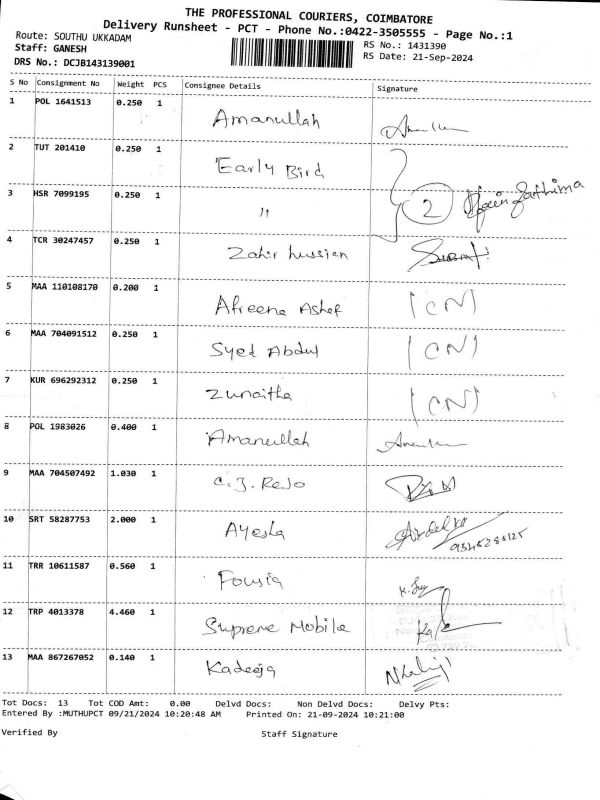 THE PROFESSIONAL COURIERS, COIMBATORE
Delivery Runsheet - PCT - Phone No.:0422-3505555 - Page No.:1
Route: SOUTHU UKKADAM
RS No.: 1431390
Staff: GANESH
RS Date: 21-Sep-2024
DRS No.: DCJB143139001
S No Consignment No Weight PCS Consignee Details Signature
1 POL 1641513 0.250 1 Amanullah
2 TUT 201410 0.250 1 Early Bird
3 HSR 7099195 0.250 1 " 2
4 TCR 30247457 0.250 1 Zahir hussien
5 MAA 110108170 0.200 1 Afreena Ashef (CN)
6 MAA 704091512 0.250 1 Syed Abdul (CN)
7 KUR 696292312 0.250 1 Zunaitha (CN)
8 POL 1983026 0.400 1 Amanullah
9 MAA 704507492 1.030 1 C.J. Rejo
10 SRT 58287753 2.000 1 Ayesha
11 TRR 10611587 0.560 1 Fousia
12 TRP 4013378 4.460 1 Supreme Mobile
13 MAA 867267052 0.140 1 Kadeeja
Tot Docs: 13 Tot COD Amt: 0.00 Delvd Docs: Non Delvd Docs: Delvy Pts:
Entered By :MUTHUPCT 09/21/2024 10:20:48 AM Printed On: 21-09-2024 10:21:00
Verified By Staff Signature